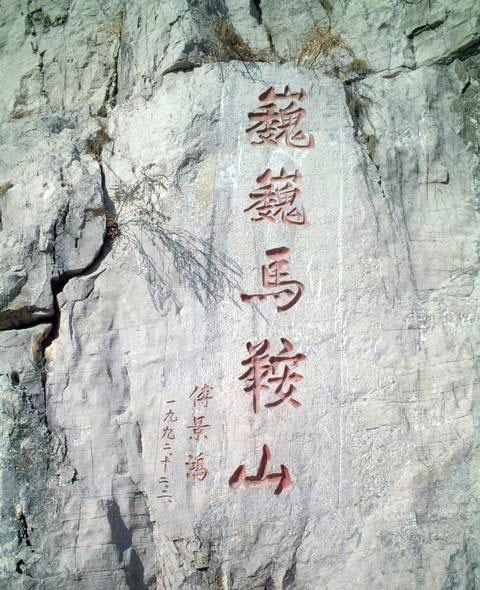 巍巍馬鞍山
傅景鴻
一九九二·十二·二六